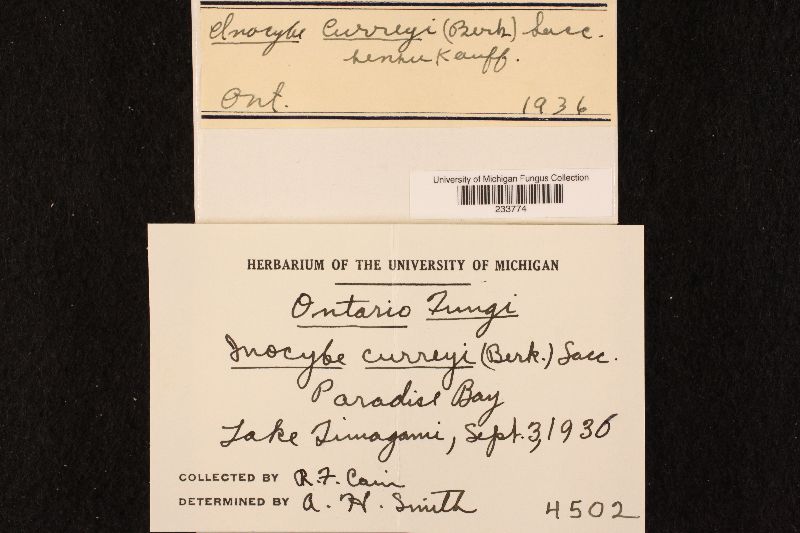 Inocybe Curreyi (Berk) Sacc.
sensu Kauff.
Ont. 1936
University of Michigan Fungus Collection
233774
HERBARIUM OF THE UNIVERSITY OF MICHIGAN
Ontario Fungi
Inocybe curreyi (Berk.) Sacc.
Paradise Bay
Lake Timagami, Sept. 3, 1936
COLLECTED BY R. F. Cain
DETERMINED BY A. H. Smith
4502